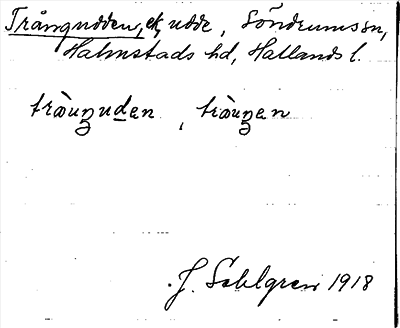 Trångudden, ek, udde, Söndrums sn,
Halmstads hd, Hallands l.
tràuŋuden, tràuŋen
J. Sahlgren 1918